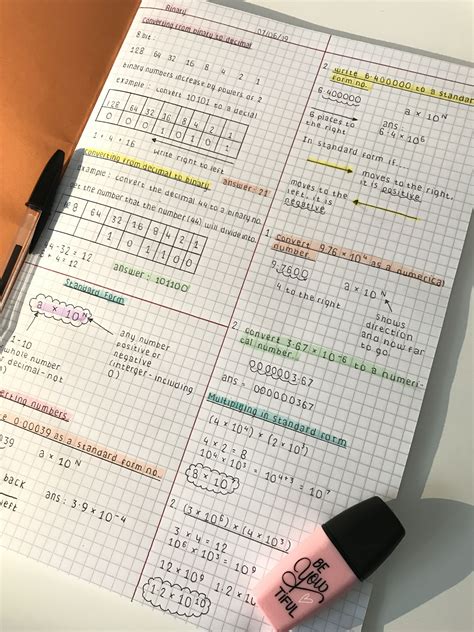 Binary
07/06/19
converting from binary to decimal
8 bit:
128 64 32 16 8 4 2 1
binary numbers increase by powers of 2
example : convert 10101 to a decimal
128 64 32 16 8 4 2 1
0 0 0 1 0 1 0 1
write right to left
1 + 4 + 16
answer : 21
converting from decimal to binary
example : convert the decimal 44 to a binary no.
get the number that the number (44) will divide into.
64 32 16 8 4 2 1
0 1 0 1 1 0 0
44-32 = 12
8 + 4 = 12
answer : 101100
Standard Form
a × 10ᴺ
1-10
whole number
decimal-not
any number
positive or
negative
(interger-including
0)
erting numbers
0.00039 as a standard form no.
039
a × 10ᴺ
back
ans : 3.9 × 10⁻⁴
2. write 6.400000 to a standard
form no.
6.400000
a × 10ᴺ
6 places to
the right
ans:
6.4 × 10⁶
In standard form if...
moves to the right,
it is positive
moves to the
left, it is
negative
1. convert 9.76 × 10⁴ as a numerical
number
9.7600
a × 10ᴺ
4 to the right
shows
direction
and how far
to go.
2. convert 3.67 × 10⁻⁶ to a numeri-
cal number.
000003.67
ans = 0.00000367
Multiplying in standard form
(4 × 10⁴) × (2 × 10³)
4 × 2 = 8
10⁴ × 10³ = 10⁴⁺³ = 10⁷
8 × 10⁷
2. (3 × 10⁶) × (4 × 10³)
3 × 4 = 12
10⁶ × 10³ = 10⁹
12 × 10⁹
1.2 × 10¹⁰
BE
YOU
TIFUL